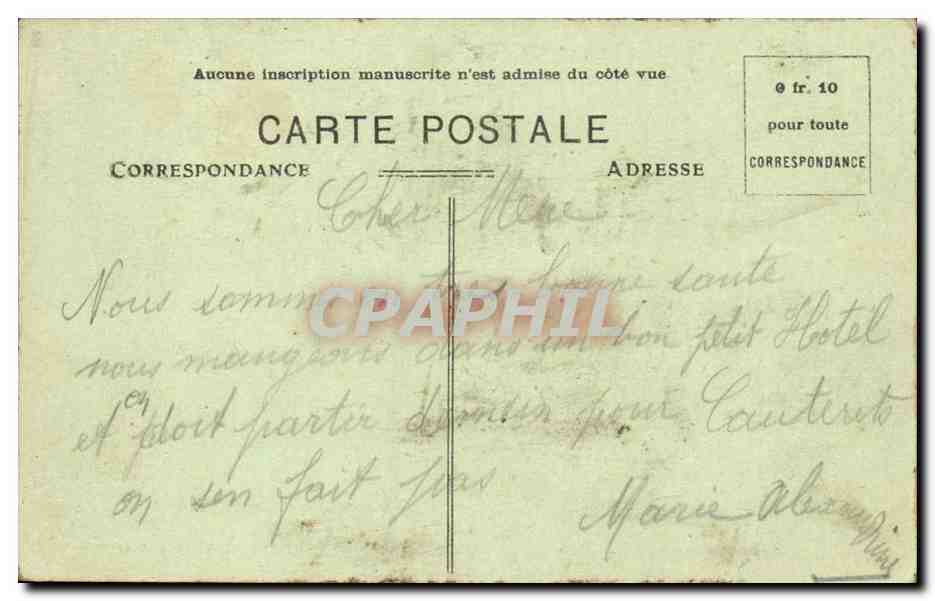 Aucune inscription manuscrite n'est admise du côté vue
CARTE POSTALE
CORRESPONDANCE
ADRESSE
0 fr. 10
pour toute
CORRESPONDANCE
Cher Mere
Nous somm tres bonne sante
nous mangeons dans un bon petit Hotel
et on doit partir demain pour Cauterets
on sen fait pas
Marie Alexandrine
CPAPHIL